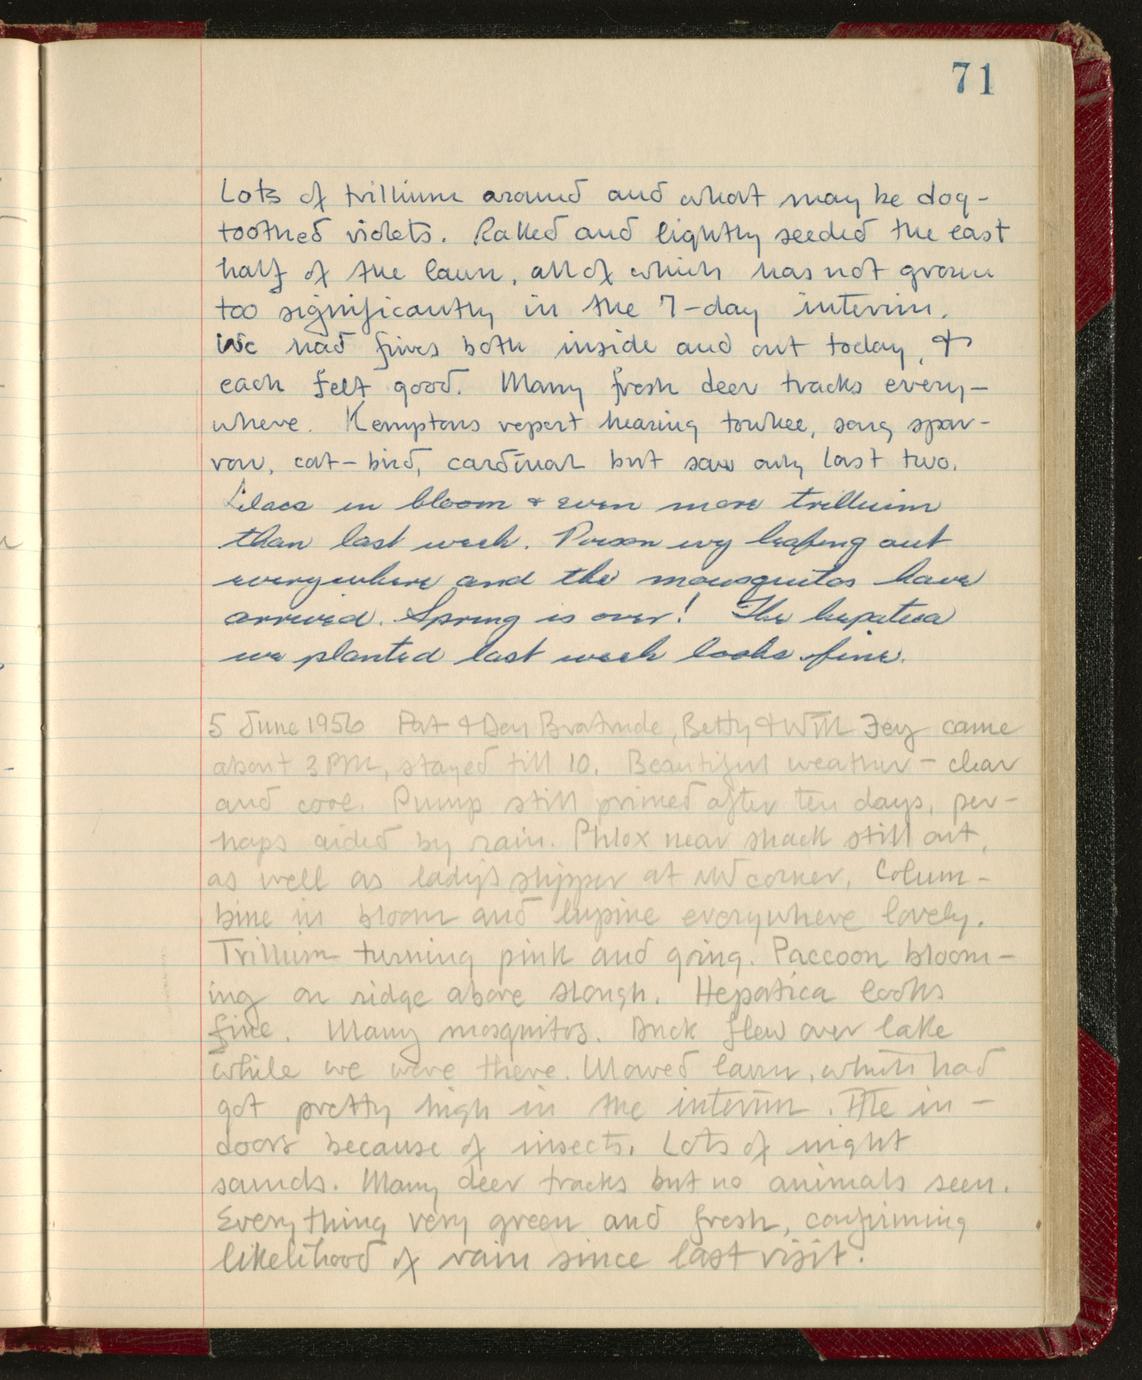 71
Lots of trillium around and what may be dog-
toothed violets. Raked and lightly seeded the east
half of the lawn, all of which has not grown
too significantly in the 7-day interim.
We had fires both inside and out today, &
each felt good. Many fresh deer tracks every-
where. Kemptons report hearing towhee, song spar-
row, cat-bird, cardinal but saw only last two.
Lilacs in bloom & even more trillium
than last week. Poison ivy leafing out
everywhere and the mowsquitos have
arrived. Spring is over! The hepatica
we planted last week looks fine.
5 June 1956 Pat & Deny Bratrude, Betty & Will Fey came
about 3 PM, stayed till 10. Beautiful weather - clear
and cool. Pump still primed after ten days, per-
haps aided by rain. Phlox near shack still out,
as well as lady's slipper at NW corner. Colum-
bine in bloom and lupine everywhere lovely.
Trillium turning pink and going. Puccoon bloom-
ing on ridge above slough. Hepatica looks
fine. Many mosquitos. Duck flew over lake
while we were there. Mowed lawn, which had
got pretty high in the interim. Ate in-
doors because of insects. Lots of night
sounds. Many deer tracks but no animals seen.
Everything very green and fresh, confirming
likelihood of rain since last visit.